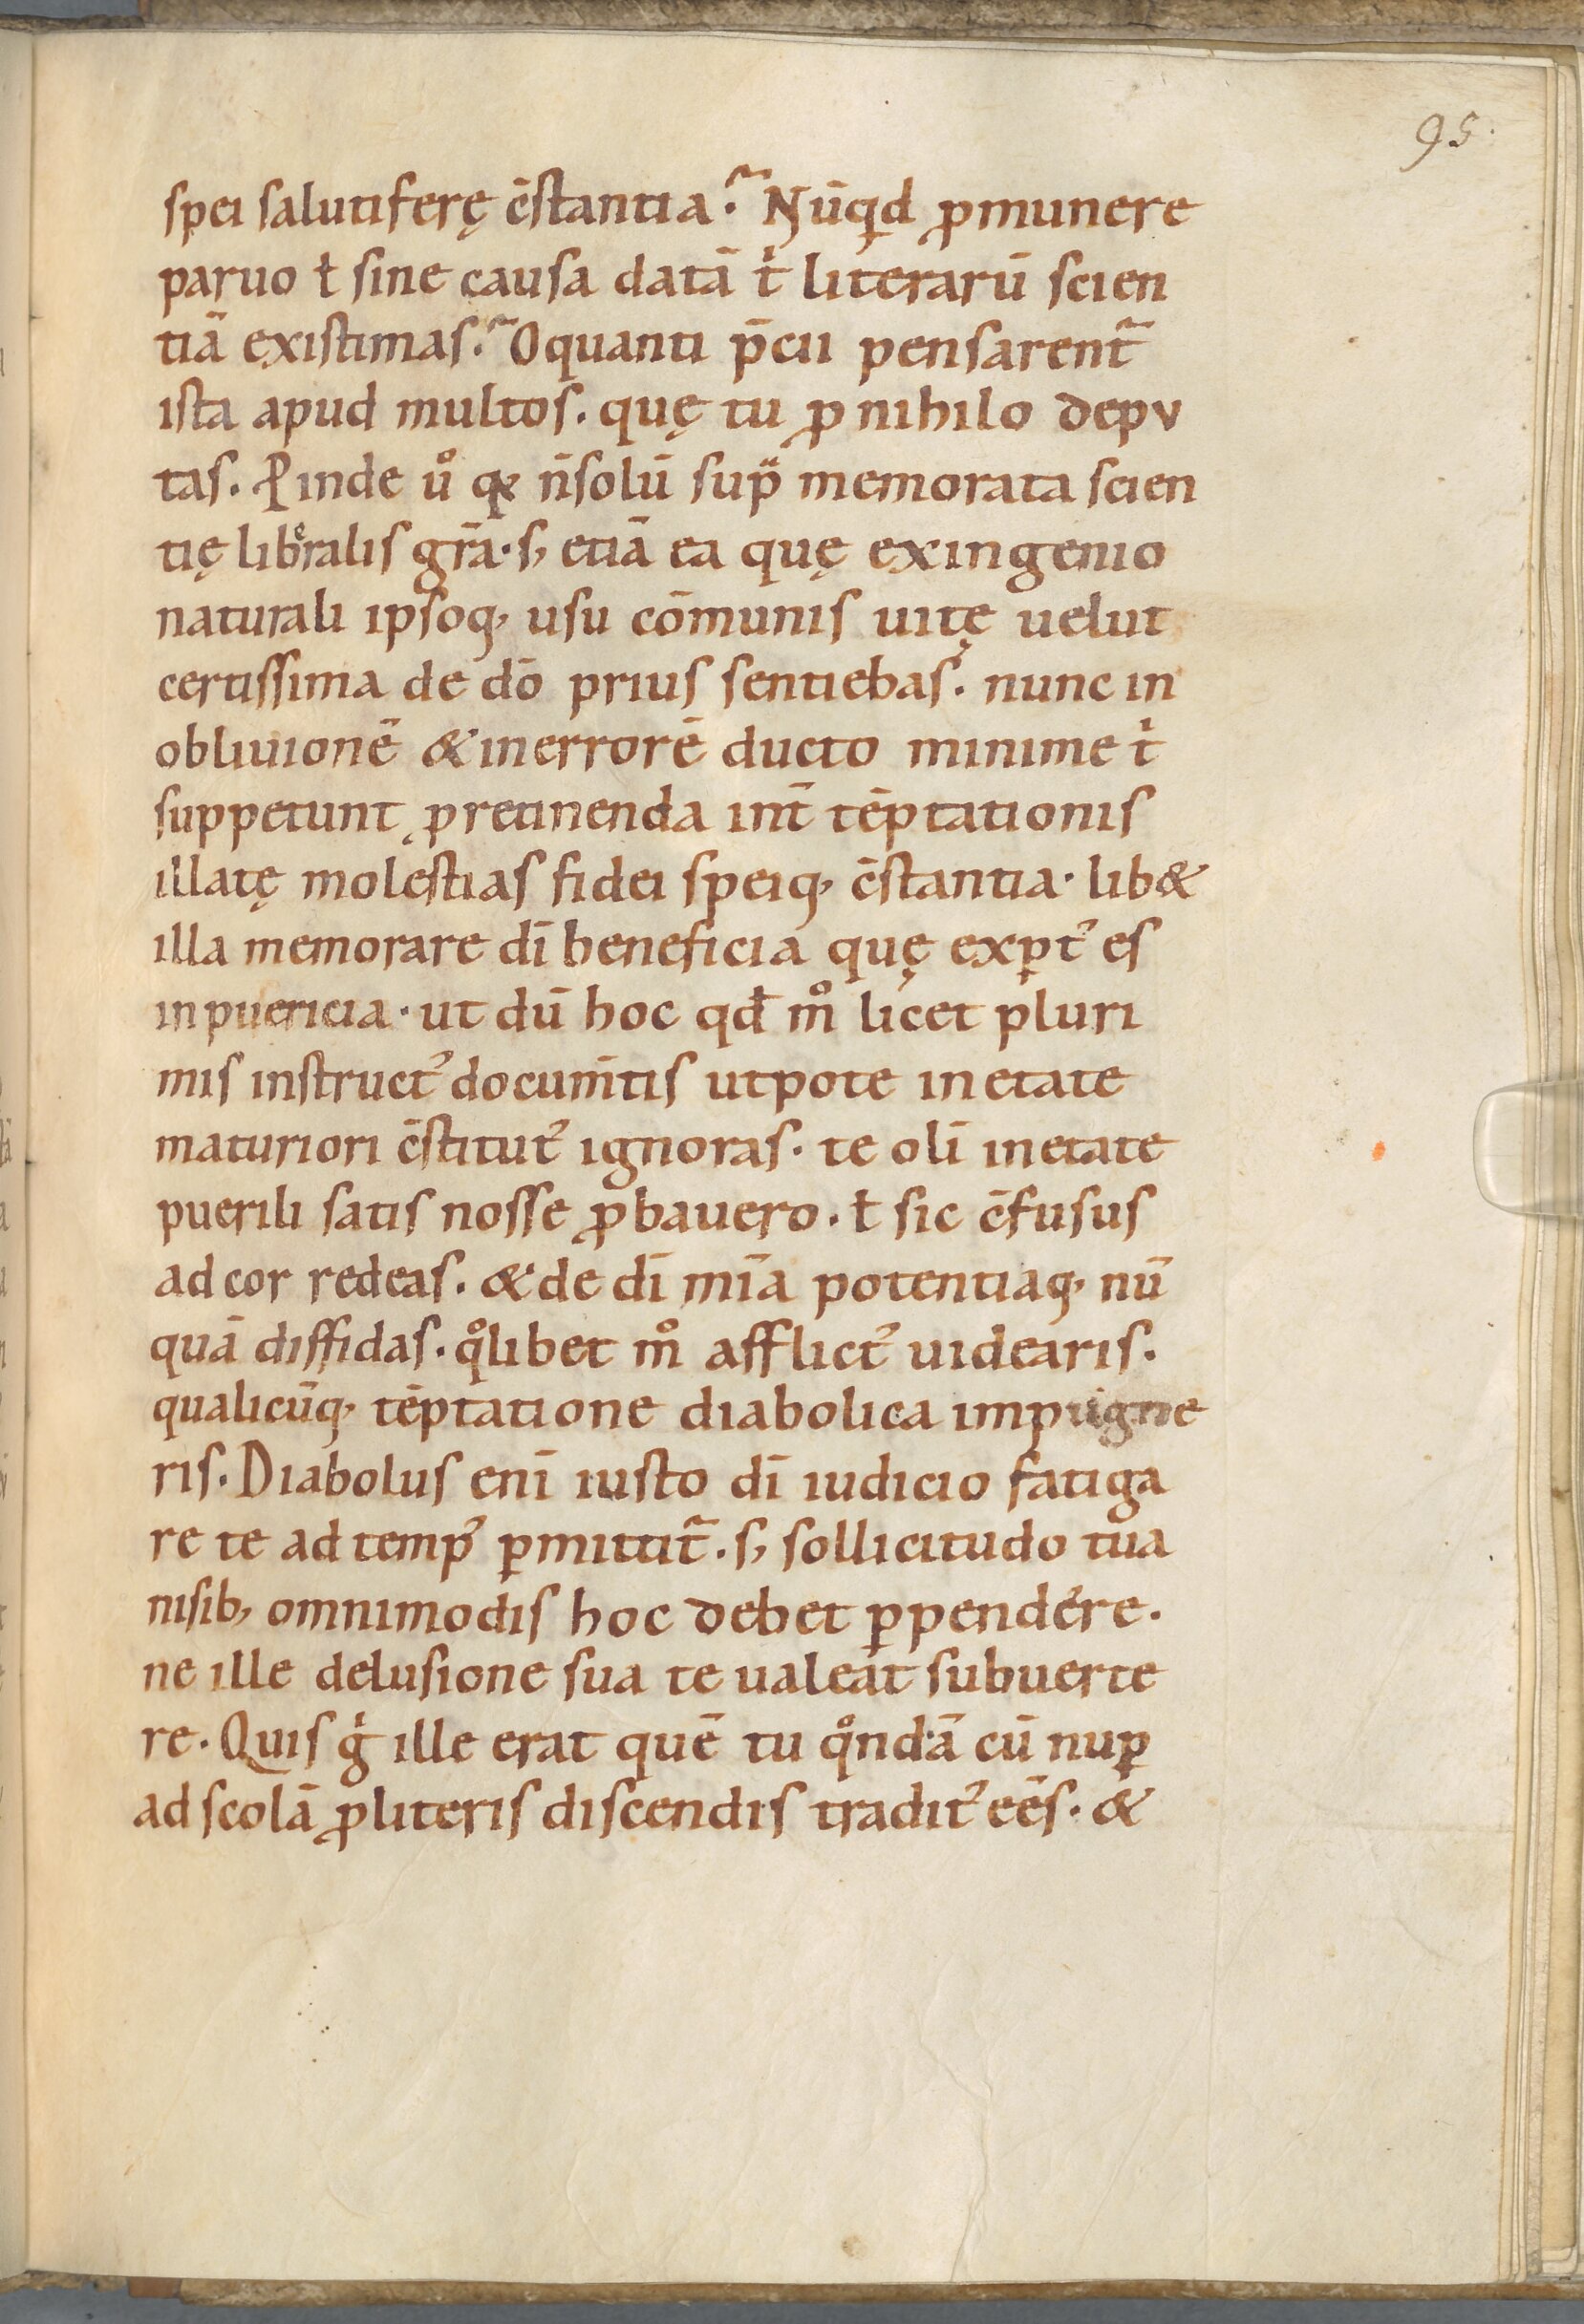 95.
spei salutiferę c̄stantia? Nūqd ꝓmunere
paruo ł sine causa datā t̓ literarū scien
tiā existimas? O quanti p̄cii pensarent᷑
ista apud multos. quę tu ꝓ nihilo depu
tas. Ꝓinde uͦ qꝫ n̄solū sup̄ memorata scien
tię lib͛ralis gr̄a. s; etiā ea quę ex ingenio
naturali ipsoq; usu cōmunis uitę uelut
certissima de dō prius sentiebas. nunc in
obliuionē & in errorē ducto minime t̓
suppetunt ꝓ retinenda int̄ tēptationis
illatę molestias fidei speiq; c̄stantia. lib&
illa memorare dī beneficia quę exꝑt᾽ es
in puericia. ut dū hoc qđ mͦ licet pluri
mis instruct᾽ docum̄tis utpote in etate
maturiori c̄stitut᾽ ignoras. te olī in etate
puerili satis nosse ꝓbauero. ł sic c̄fusus
ad cor redeas. & de dī mīa potentiaq; nū
quā diffidas. qͦlibet mͦ afflict᾽ uidearis.
qualicūq; tēptatione diabolica impugne
ris. Diabolus enī iusto dī iudicio fatiga
re te ad temp᾽ ꝑmittit᷑. s; sollicitudo tua
nisib; omnimodis hoc debet ꝑpendere.
ne ille delusione sua te ualeat subuerte
re. Quis g̓ ille erat quē tu qͦndā cū nuꝑ
ad scolā ꝓ literis discendis tradit᾽ eēs. &